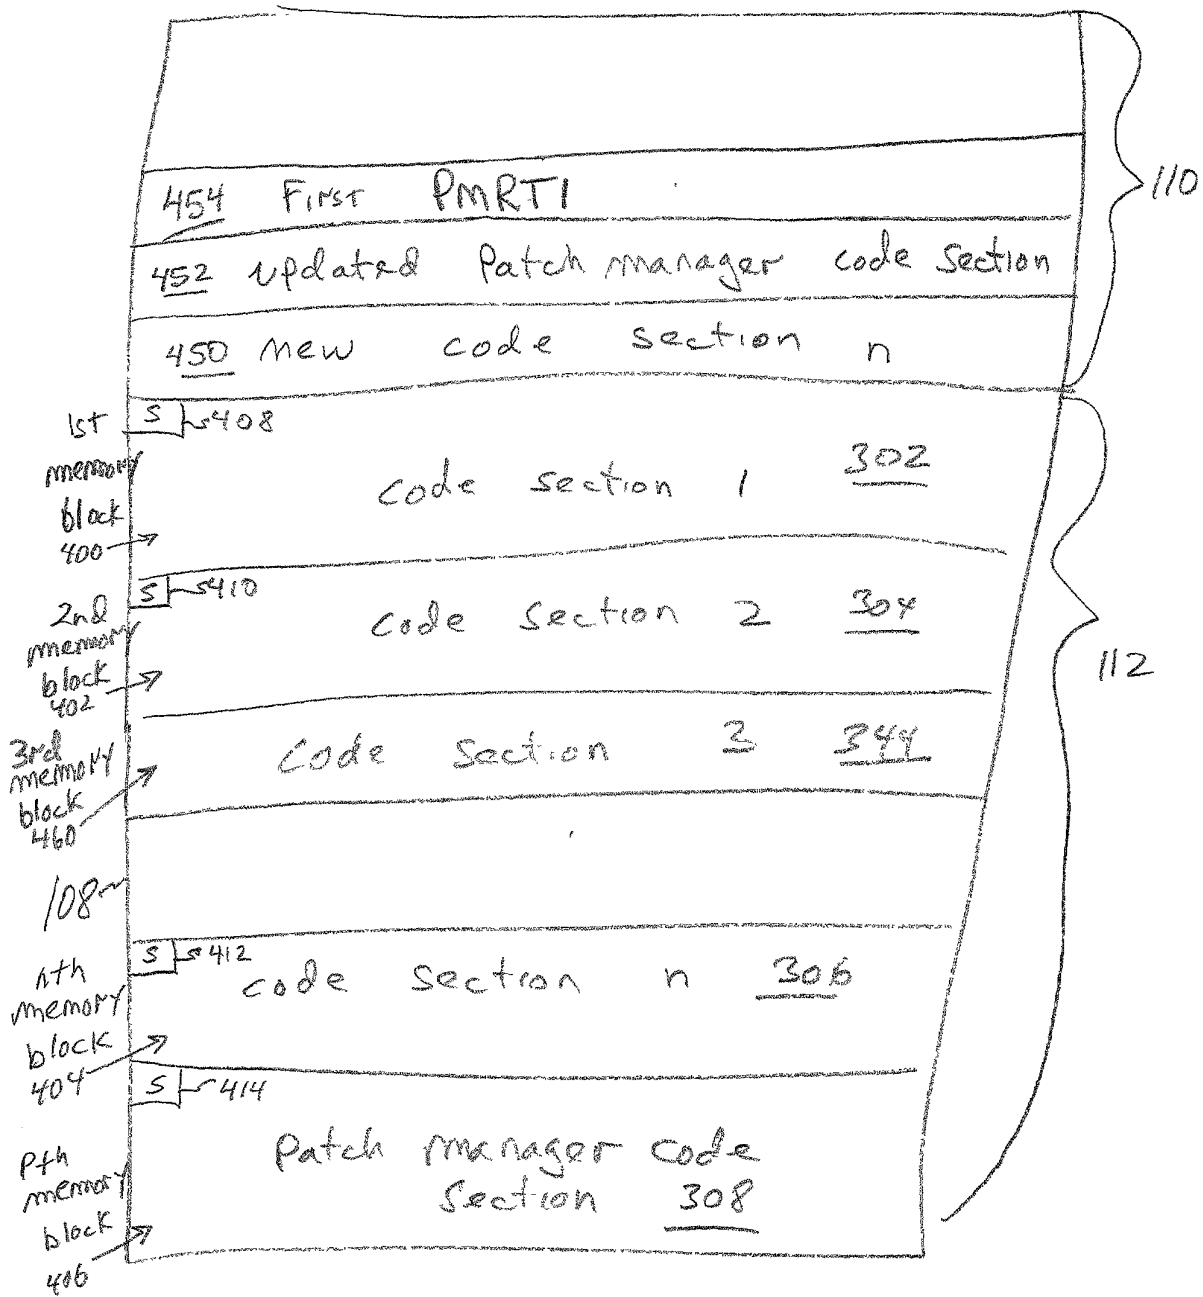 454 First PMRTI
110
452 updated Patch manager code section
450 new code section n
1st memory block 400
S 408
code section 1 302
2nd memory block 402
S 410
code section 2 304
112
3rd memory block 460
code section 3 344
108
nth memory block 404
S 412
code section n 306
Pth memory block 406
S 414
Patch manager code
section 308